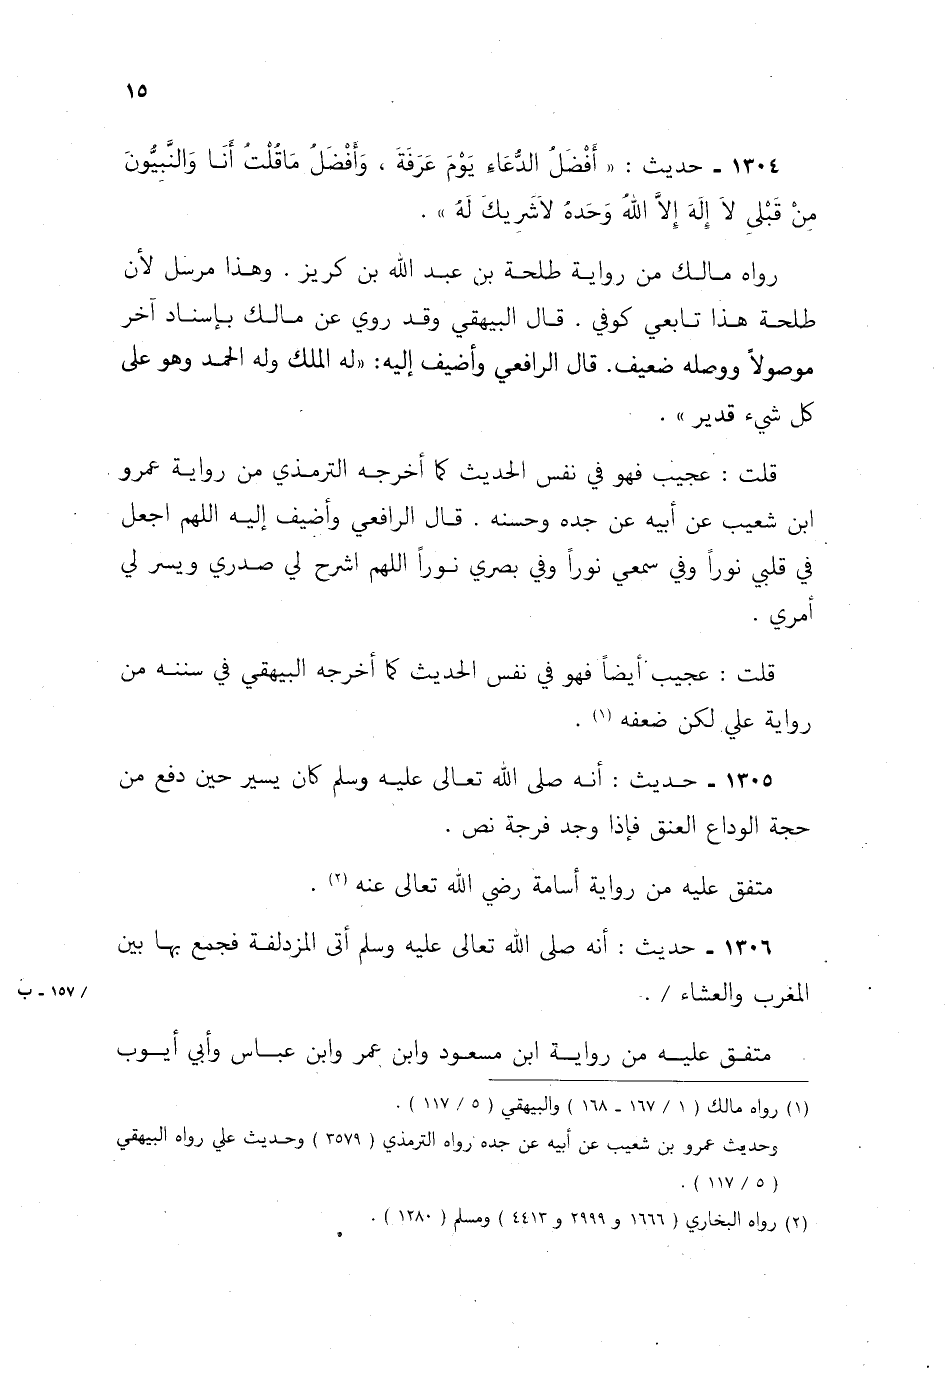 ١٥
١٣٠٤ ـ حديث : « أَفْضَلُ الدُّعَاءِ يَوْمَ عَرَفَةَ ، وَأَفْضَلُ مَاقُلْتُ أَنَا وَالنَّبِيُّونَ
مِنْ قَبْلِي لاَ إِلَهَ إِلاَّ اللهُ وَحَدهُ لاَشَرِيكَ لَهُ » .
رواه مالك من رواية طلحة بن عبد الله بن كريز . وهذا مرسل لأن
طلحة هذا تابعي كوفي . قال البيهقي وقد روي عن مالك بإسناد آخر
موصولاً ووصله ضعيف. قال الرافعي وأضيف إليه: «له الملك وله الحمد وهو على
كل شيء قدير » .
قلت : عجيب فهو في نفس الحديث كما أخرجه الترمذي من رواية عمرو
ابن شعيب عن أبيه عن جده وحسنه . قال الرافعي وأضيف إليه اللهم اجعل
في قلبي نوراً وفي سمعي نوراً وفي بصري نوراً اللهم اشرح لي صدري ويسر لي
أمري .
قلت : عجيب أيضاً فهو في نفس الحديث كما أخرجه البيهقي في سننه من
رواية علي لكن ضعفه (١) .
١٣٠٥ ـ حديث : أنه صلى الله تعالى عليه وسلم كان يسير حين دفع من
حجة الوداع العنق فإذا وجد فرجة نص .
متفق عليه من رواية أسامة رضي الله تعالى عنه (٢) .
١٣٠٦ ـ حديث : أنه صلى الله تعالى عليه وسلم أتى المزدلفة فجمع بها بين
المغرب والعشاء / .
/ ١٥٧ ـ ب
متفق عليه من رواية ابن مسعود وابن عمر وابن عباس وأبي أيوب
(١) رواه مالك ( ١ / ١٦٧ ـ ١٦٨ ) والبيهقي ( ٥ / ١١٧ ) .
وحديث عمرو بن شعيب عن أبيه عن جده رواه الترمذي ( ٣٥٧٩ ) وحديث علي رواه البيهقي
( ٥ / ١١٧ ) .
(٢) رواه البخاري ( ١٦٦٦ و ٢٩٩٩ و ٤٤١٣ ) ومسلم ( ١٢٨٠ ) .